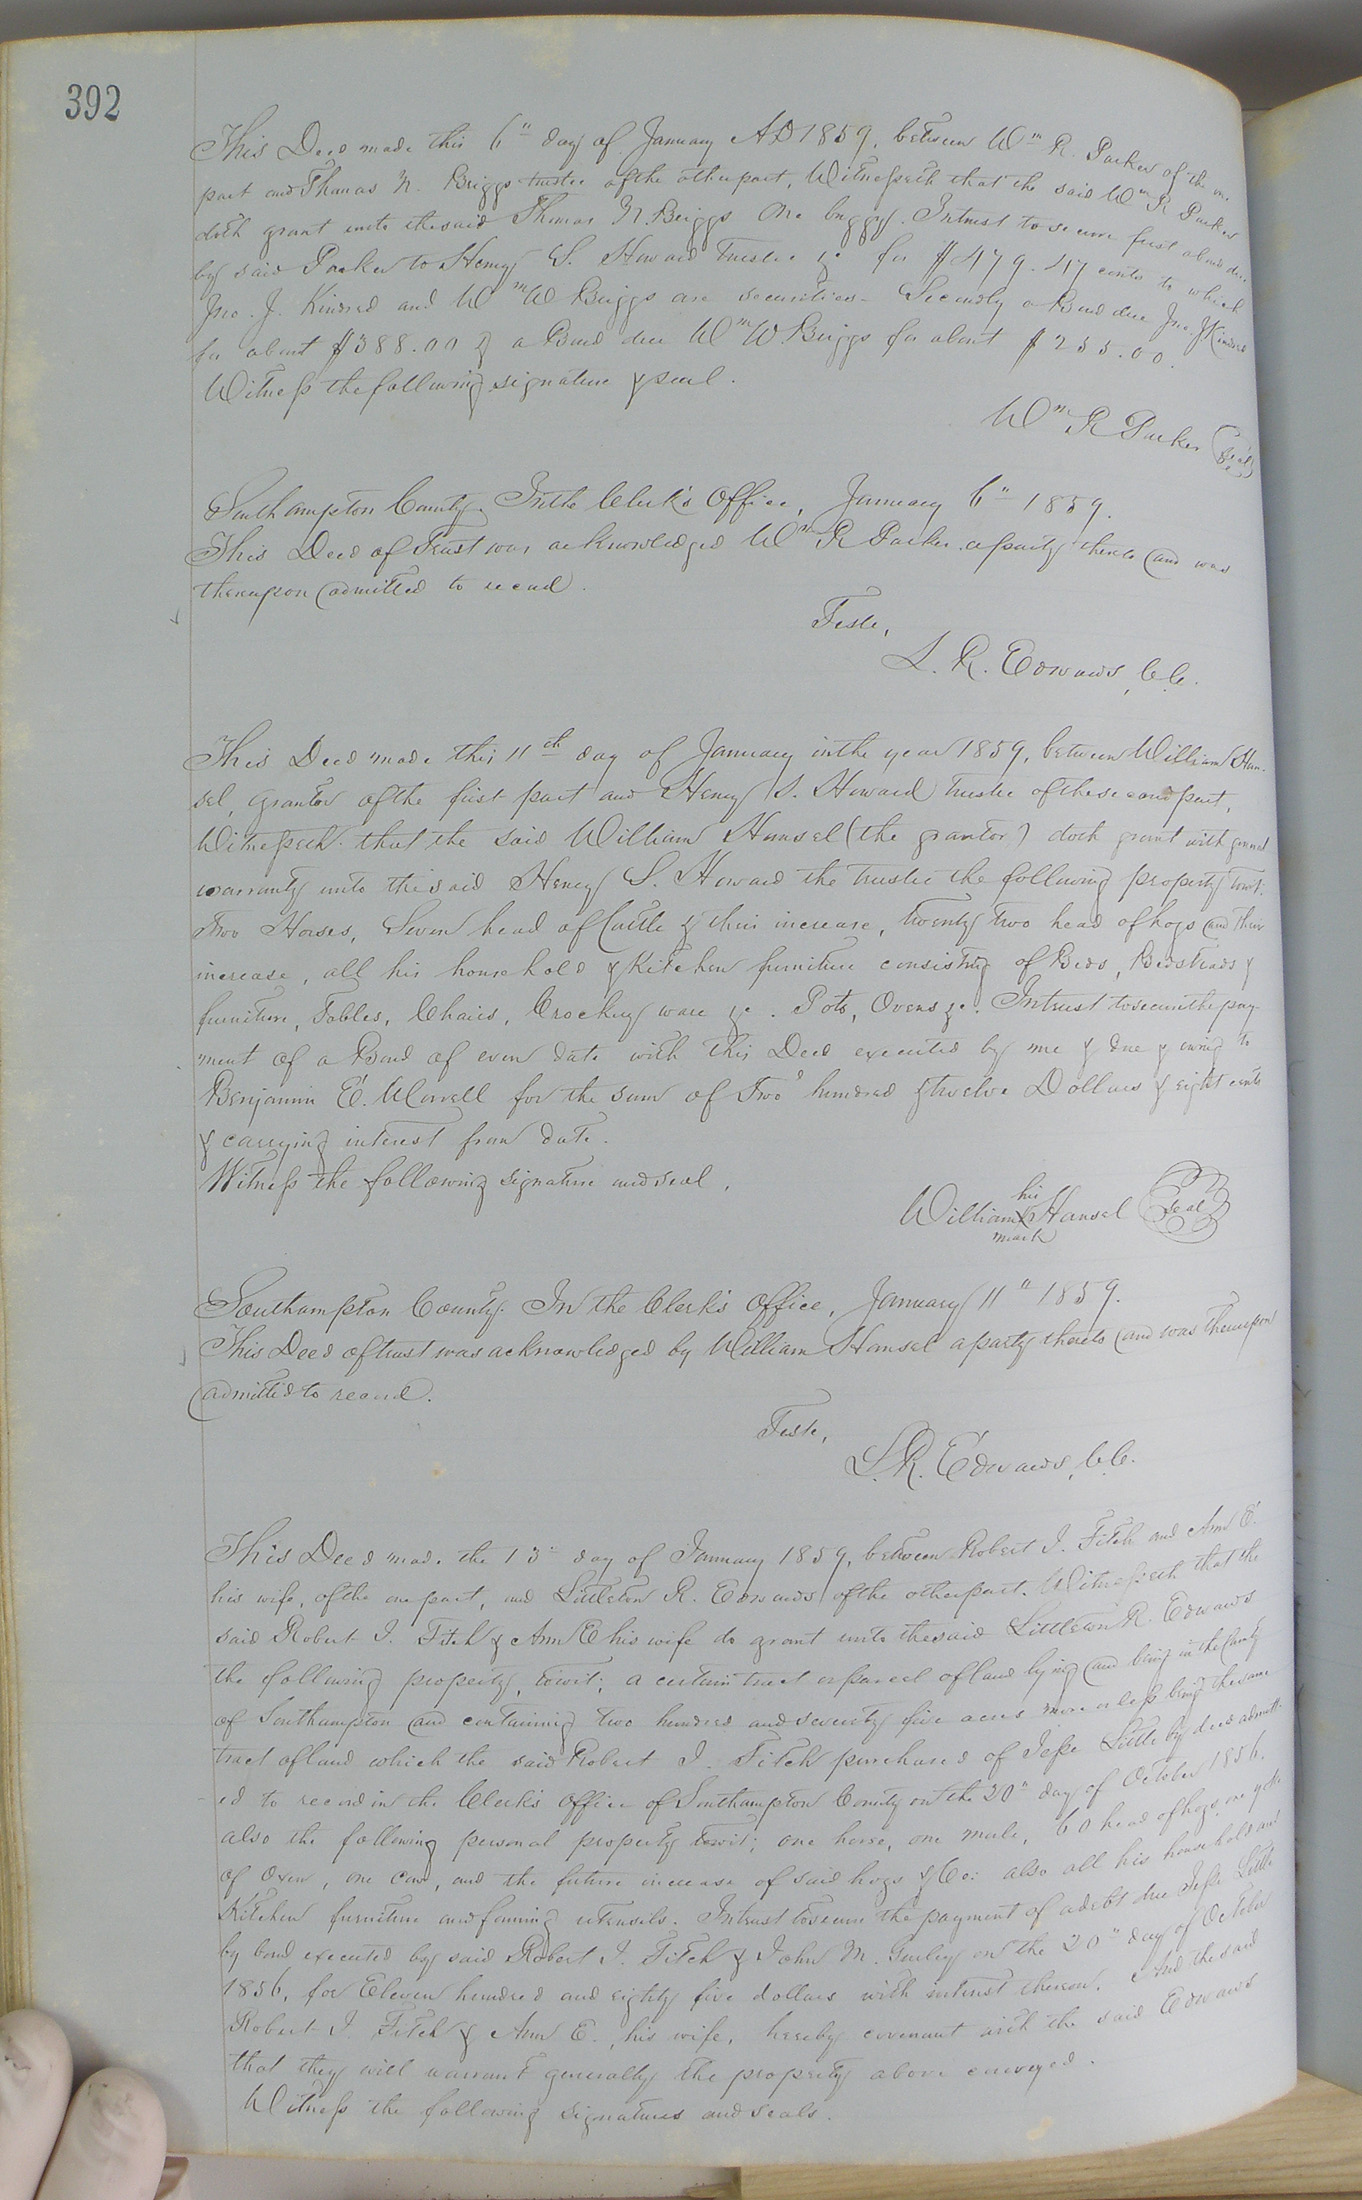 392
This Deed made this 6" day of January AD 1859, between Wm R. Parker of the one
part and Thomas N. Briggs trustee of the other part, Witnesseth that the said Wm R Parker
doth grant unto the said Thomas N. Briggs One buggy. In trust to secure first a bond due
by said Parker to Henry S. Howard Trustee &c for $479.47 cents to which
Jno. J. Kindred and Wm W Briggs are securities - Secondly a Bond due Jno. J Kindred
for about $388.00 & a Bond due Wm W. Briggs for about $255.00.
Witness the following signature & seal.
Wm R Parker (Seal)
Southampton County. In the Clerk's Office, January 6" 1859.
This Deed of Trust was acknowledged Wm R Parker a party thereto and was
thereupon admitted to record.
Teste,
L. R. Edwards, C.C.
This Deed made this 11th day of January in the year 1859, between William Han-
sel, grantor of the first part and Henry S. Howard trustee of the second part,
Witnesseth that the said William Hansel (the grantor) doth grant with general
warranty unto the said Henry S. Howard the trustee the following property towit:
Two Horses, Seven head of Cattle & their increase, twenty two head of hogs and their
increase, all his household & Kitchen furniture consisting of Beds, Bedsteads &
furniture, Tables, Chairs, Crockery ware &c. Pots, Ovens &c. In trust to secure the pay-
ment of a Bond of even date with this Deed executed by me & due & owing to
Benjamin E. Worrell for the sum of Two hundred & twelve Dollars & eight cents
& carrying interest from date.
Witness the following signature and seal.
his
William X Hansel (Seal)
mark
Southampton County. In the Clerk's Office, January 11" 1859.
This Deed of trust was acknowledged by William Hansel a party thereto and was thereupon
admitted to record.
Teste,
L. R. Edwards, C.C.
This Deed made the 13" day of January 1859, between Robert J. Fitch and Ann E.
his wife, of the one part, and Littleton R. Edwards of the other part. Witnesseth that the
said Robert J. Fitch & Ann E his wife do grant unto the said Littleton R. Edwards
the following property, towit; a certain tract or parcel of land lying and being in the County
of Southampton and containing two hundred and seventy five acres more or less being the same
tract of land which the said Robert J. Fitch purchased of Jesse Little by deed admitt-
ed to record in the Clerk's Office of Southampton County on the 20" day of October 1856.
also the following personal property towit; one horse, one mule, 60 head of hogs, one yoke
of Oxen, one cow, and the future increase of said hogs & Co: also all his household and
Kitchen furniture and farming utensils. In trust to secure the payment of a debt due Jesse Little
by bond executed by said Robert J. Fitch & John M. Gurley on the 20" day of October
1856, for Eleven hundred and eighty five dollars with interest thereon. And the said
Robert J. Fitch & Ann E., his wife, hereby covenant with the said Edwards
that they will warrant generally the property above conveyed.
Witness the following signatures and seals.